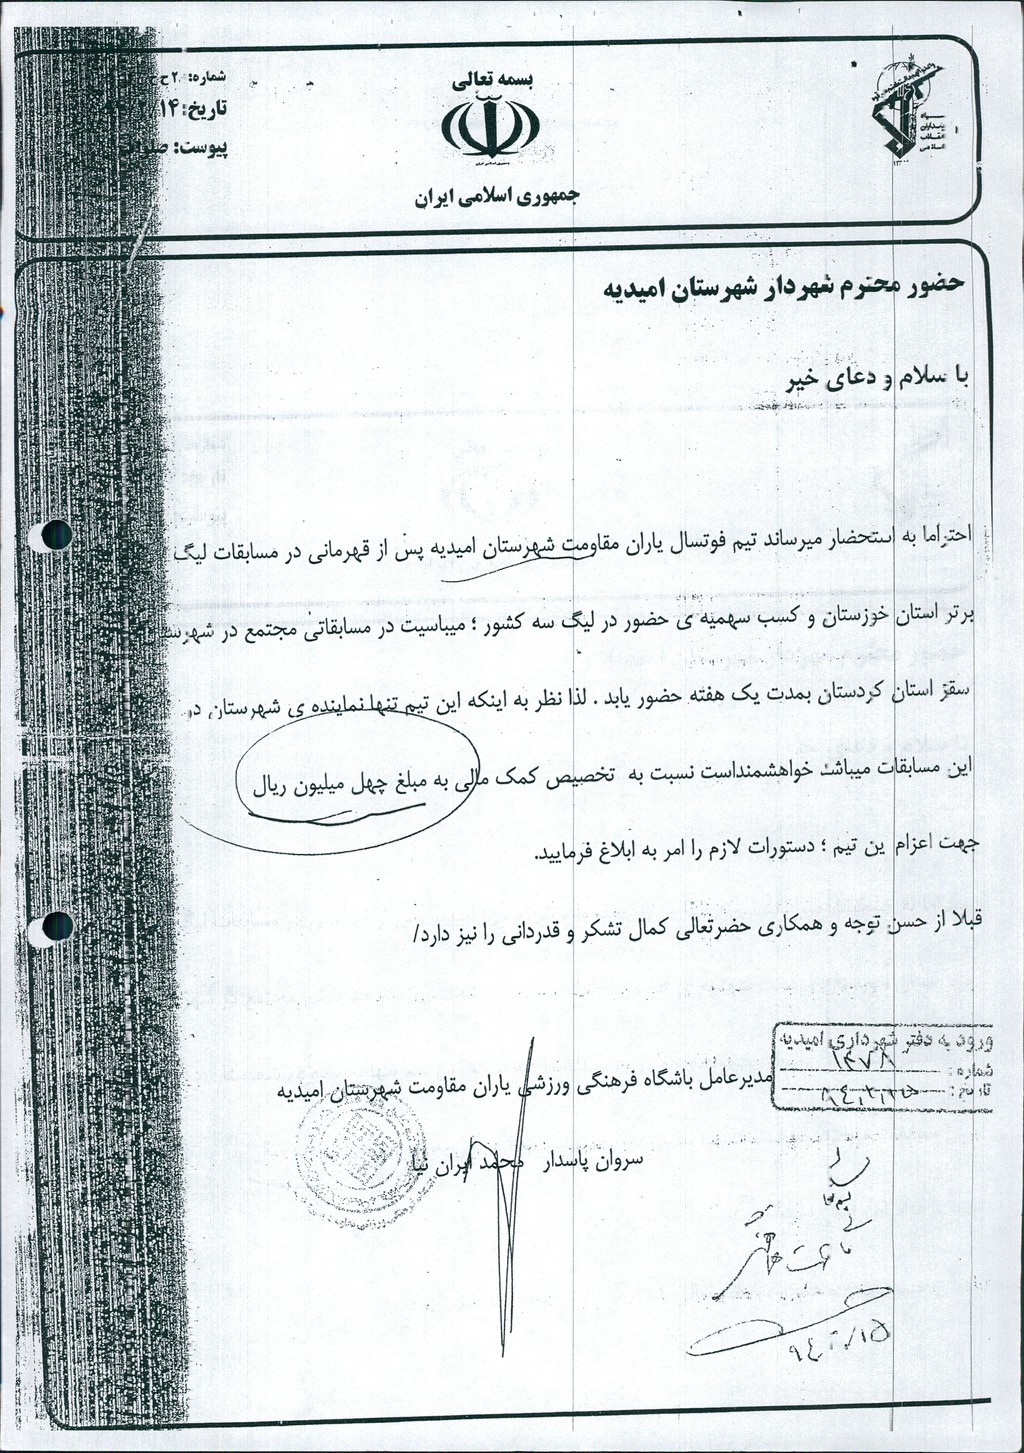 بسمه تعالی
جمهوری اسلامی ایران
شماره: ۲۰ ح
تاریخ: ۱۴
پیوست:
سپاه
پاسداران
انقلاب
اسلامی
حضور محترم شهردار شهرستان امیدیه
با سلام و دعای خیر
احتراما به استحضار میرساند تیم فوتسال یاران مقاومت شهرستان امیدیه پس از قهرمانی در مسابقات لیگ
برتر استان خوزستان و کسب سهمیه ی حضور در لیگ سه کشور ؛ میباسیت در مسابقاتی مجتمع در شهرس
سقز استان کردستان بمدت یک هفته حضور یابد . لذا نظر به اینکه این تیم تنها نماینده ی شهرستان در
این مسابقات میباشد خواهشمنداست نسبت به تخصیص کمک مالی به مبلغ چهل میلیون ریال
جهت اعزام ین تیم ؛ دستورات لازم را امر به ابلاغ فرمایید.
قبلا از حسن توجه و همکاری حضرتعالی کمال تشکر و قدردانی را نیز دارد/
ورود به دفتر شهرداری امیدیه
شماره: ۱۳۷۸
تاریخ: ۹۴،۲،۱۵
مدیرعامل باشگاه فرهنگی ورزشی یاران مقاومت شهرستان امیدیه
سروان پاسدار محمد ایران نیا